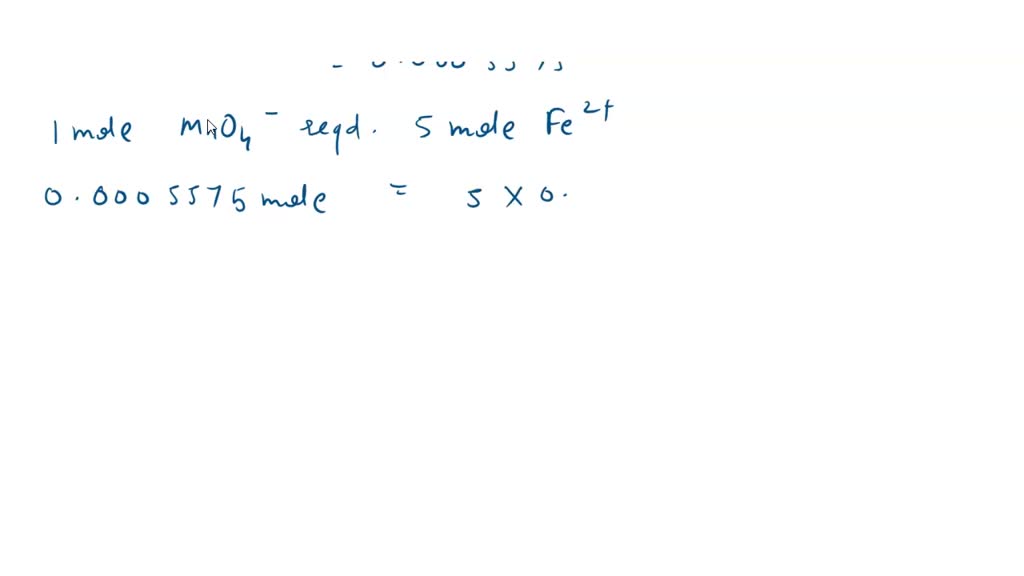 1 mole MnO4⁻ reqd. 5 mole Fe²⁺
0.0005575 mole = 5 X 0.